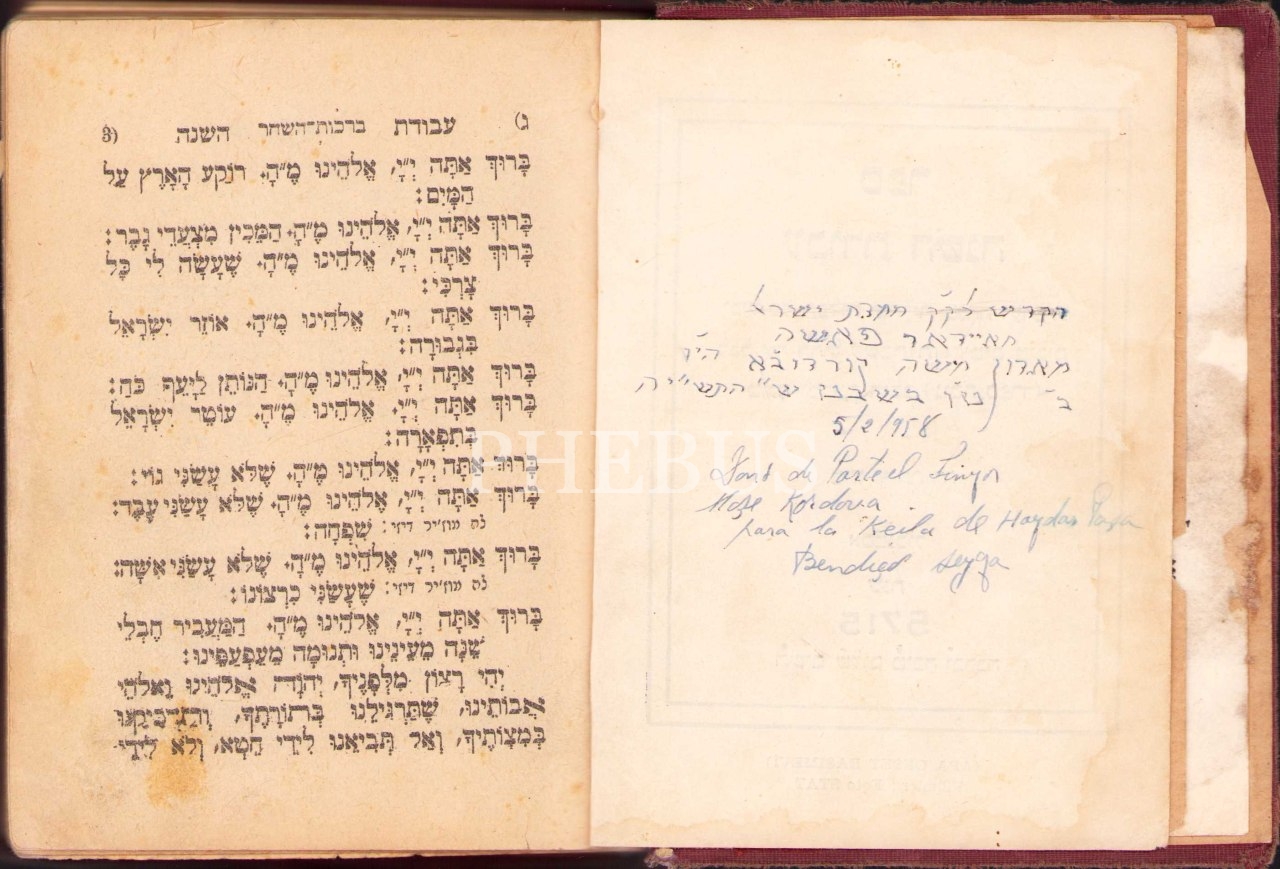 ג) עבודת ברכות־השחר השנה (3
בָּרוּךְ אַתָּה יְ״יָ, אֱלֹהֵינוּ מֶ״הָ. רוֹקַע הָאָרֶץ עַל
הַמָּיִם:
בָּרוּךְ אַתָּה יְ״יָ, אֱלֹהֵינוּ מֶ״הָ. הַמֵּכִין מִצְעֲדֵי גָבֶר:
בָּרוּךְ אַתָּה יְ״יָ, אֱלֹהֵינוּ מֶ״הָ. שֶׁעָשָׂה לִי כָּל
צָרְכִּי:
בָּרוּךְ אַתָּה יְ״יָ, אֱלֹהֵינוּ מֶ״הָ. אוֹזֵר יִשְׂרָאֵל
בִּגְבוּרָה:
בָּרוּךְ אַתָּה יְ״יָ, אֱלֹהֵינוּ מֶ״הָ. הַנּוֹתֵן לַיָּעֵף כֹּחַ:
בָּרוּךְ אַתָּה יְ״יָ, אֱלֹהֵינוּ מֶ״הָ. עוֹטֵר יִשְׂרָאֵל
בְּתִפְאָרָה:
בָּרוּךְ אַתָּה יְ״יָ, אֱלֹהֵינוּ מֶ״הָ. שֶׁלֹּא עָשַׂנִי גוֹי:
בָּרוּךְ אַתָּה יְ״יָ, אֱלֹהֵינוּ מֶ״הָ. שֶׁלֹּא עָשַׂנִי עָבֶד:
שִׁפְחָה:
בָּרוּךְ אַתָּה יְ״יָ, אֱלֹהֵינוּ מֶ״הָ. שֶׁלֹּא עָשַׂנִי אִשָּׁה:
שֶׁעָשַׂנִי כִּרְצוֹנוֹ:
בָּרוּךְ אַתָּה יְ״יָ, אֱלֹהֵינוּ מֶ״הָ. הַמַּעֲבִיר חֶבְלֵי
שֵׁנָה מֵעֵינֵינוּ וּתְנוּמָה מֵעַפְעַפֵּינוּ:
יְהִי רָצוֹן מִלְּפָנֶיךָ, יְהֹוָה אֱלֹהֵינוּ וֵאלֹהֵי
אֲבוֹתֵינוּ, שֶׁתַּרְגִּילֵנוּ בְּתוֹרָתֶךָ, וְתַדְבִּיקֵנוּ
בְּמִצְוֹתֶיךָ, וְאַל תְּבִיאֵנוּ לִידֵי חֵטְא, וְלֹא לִידֵי
הקדיש לק״ק חמדת ישראל
חאיידאר פאשה
מאדון משה קורדובא הי״ו
בשבט ש״ התשי״יה
5/2/958
de Parte el Sinyor
Moşe Kordova
para la Keila de Haydar Paşa
Bendiço seyga
PHEBUS
5715